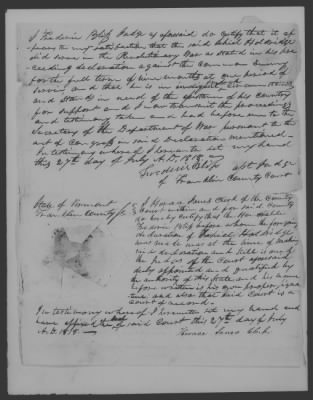 I Frederic Bliss Judge as aforesaid do certify that it ap-
pears to my satisfaction that the said Holdridge
did serve in the Revolutionary War as stated in his pre-
ceeding declaration against the Common Enemy
for the full term of nine months at one period of
service and that he is in indigent circumstances
and stands in need of the assistance of his Country
for support and I now transmit the proceedings
and testimony taken and had before me to the
Secretary of the Department of War pursuant to the
act of Congress in said declaration mentioned
In testimony whereof I hereunto set my hand
this 27th day of July A.D. 1818
Frederic Bliss
of Franklin County Court
State of Vermont
Franklin County ss
I Horace Janes Clerk of the County
Court within and for said County
do hereby certify that the Hon
Frederic Bliss before whom the foregoing
declaration of Holdridge
was made was at the time of making
said declaration and still is one
of the Judges of the Court aforesaid
duly appointed and qualified by
the authority of this State and his name
before written is his own proper signa-
ture and also that said Court is a
Court of record
In testimony whereof I hereunto set my hand and
have affixed the seal of said Court this 27th day of July
A.D. 1818
Horace Janes Clk.